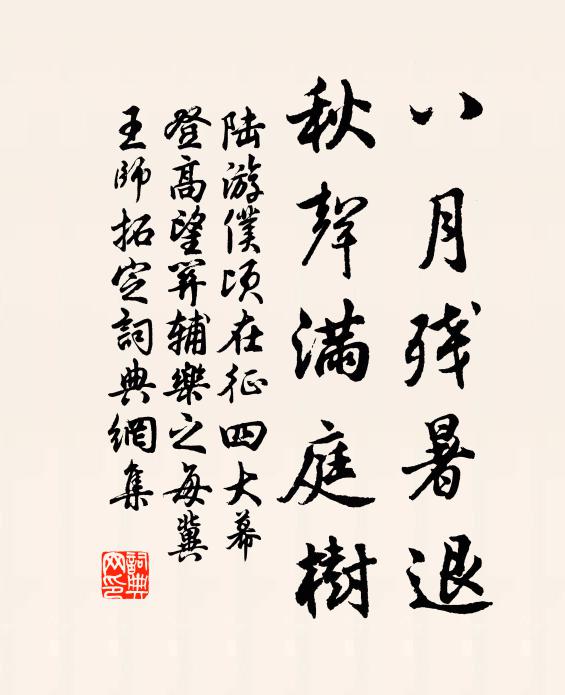 八月残暑退
秋聲滿庭樹
陆游僕頃在征四大幕
登高望関辅樂之每冀
王师拓定詞典網集
詞典
网印